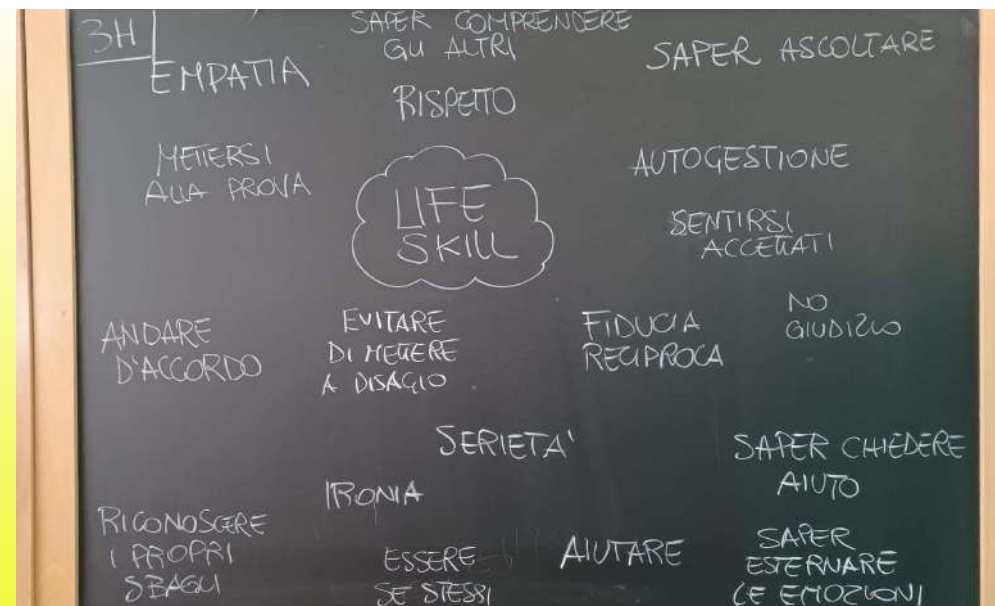 3H
SAPER COMPRENDERE
GLI ALTRI
EMPATIA
SAPER ASCOLTARE
RISPETTO
METTERSI
ALLA PROVA
AUTOGESTIONE
LIFE
SKILL
SENTIRSI
ACCETTATI
ANDARE
D'ACCORDO
EVITARE
DI METTERE
A DISAGIO
FIDUCIA
RECIPROCA
NO
GIUDIZIO
SERIETA'
SAPER CHIEDERE
AIUTO
IRONIA
RICONOSCERE
I PROPRI
SBAGLI
ESSERE
SE STESSI
AIUTARE
SAPER
ESTERNARE
LE EMOZIONI